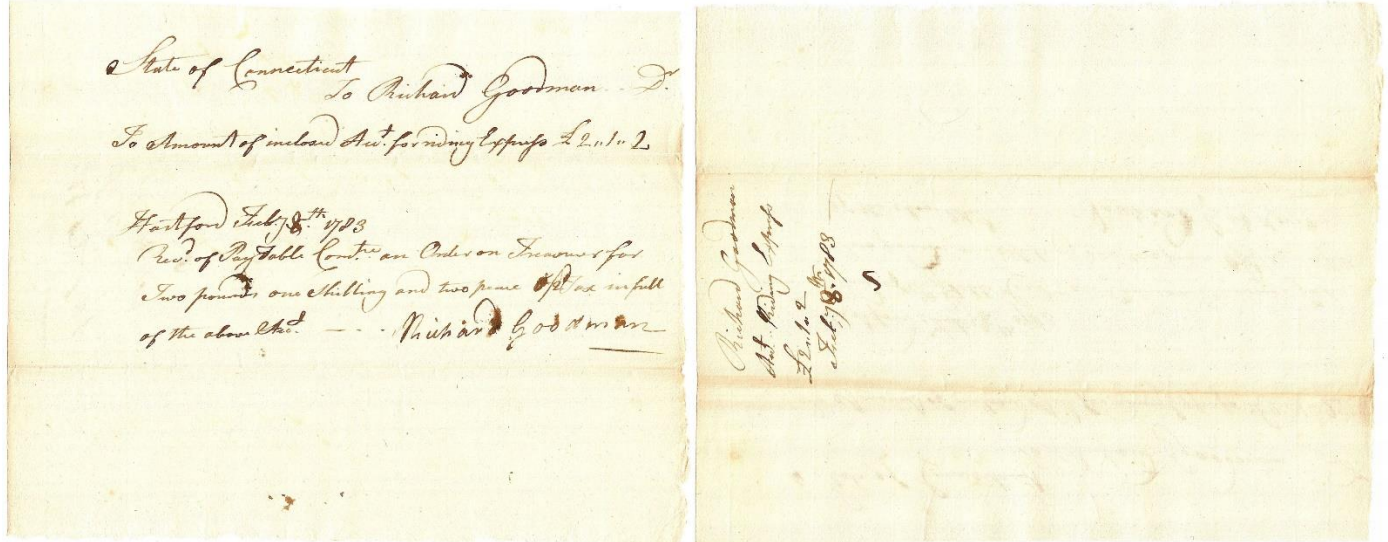 State of Connecticut
To Richard Goodman Dr
To Amount of inclosed Acct. for riding Express £2,,1,,2
Hartford Feby. 8th. 1783
Recd. of Pay Table Comtee an Order on Treasurer for
Two pounds one Shilling and two pence Tax in full
of the above Acct. - - - Richard Goodman
Richard Goodman
Acct. Riding Express
£2,,1,,2
Feby. 8th. 1783